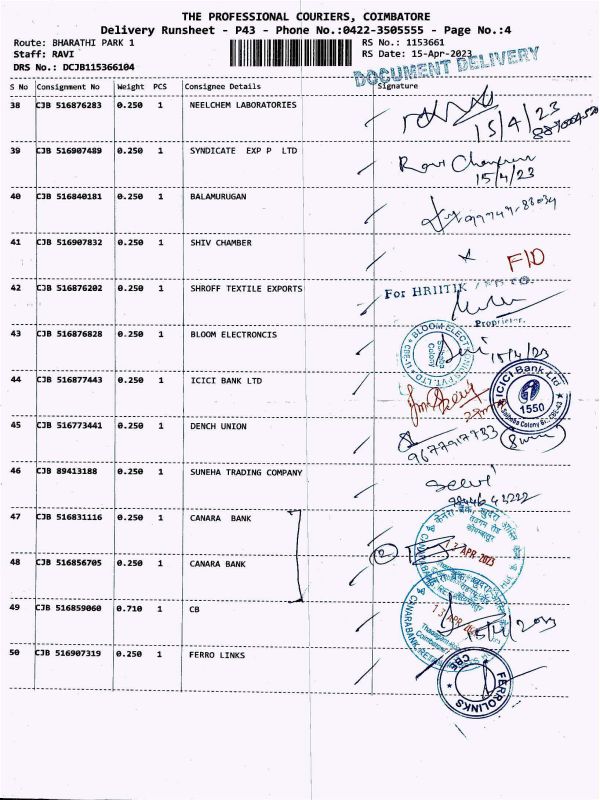 THE PROFESSIONAL COURIERS, COIMBATORE
Delivery Runsheet - P43 - Phone No.:0422-3505555 - Page No.:4
Route: BHARATHI PARK 1 RS No.: 1153661
Staff: RAVI RS Date: 15-Apr-2023
DRS No.: DCJB115366104
DOCUMENT DELIVERY
S No Consignment No Weight PCS Consignee Details Signature
38 CJB 516876283 0.250 1 NEELCHEM LABORATORIES
15/4/23
39 CJB 516907489 0.250 1 SYNDICATE EXP P LTD
15/4/23
40 CJB 516840181 0.250 1 BALAMURUGAN
41 CJB 516907832 0.250 1 SHIV CHAMBER
F/D
42 CJB 516876202 0.250 1 SHROFF TEXTILE EXPORTS
For HRIITIK
Proprietor.
43 CJB 516876828 0.250 1 BLOOM ELECTRONCIS
15/4/23
44 CJB 516877443 0.250 1 ICICI BANK LTD
ICICI Bank Ltd
1550
45 CJB 516773441 0.250 1 DENCH UNION
9677917733
46 CJB 89413188 0.250 1 SUNEHA TRADING COMPANY
Selvi
47 CJB 516831116 0.250 1 CANARA BANK
48 CJB 516856705 0.250 1 CANARA BANK
2
17 APR 2023
49 CJB 516859060 0.710 1 CB
50 CJB 516907319 0.250 1 FERRO LINKS
FERROLINKS
CBE